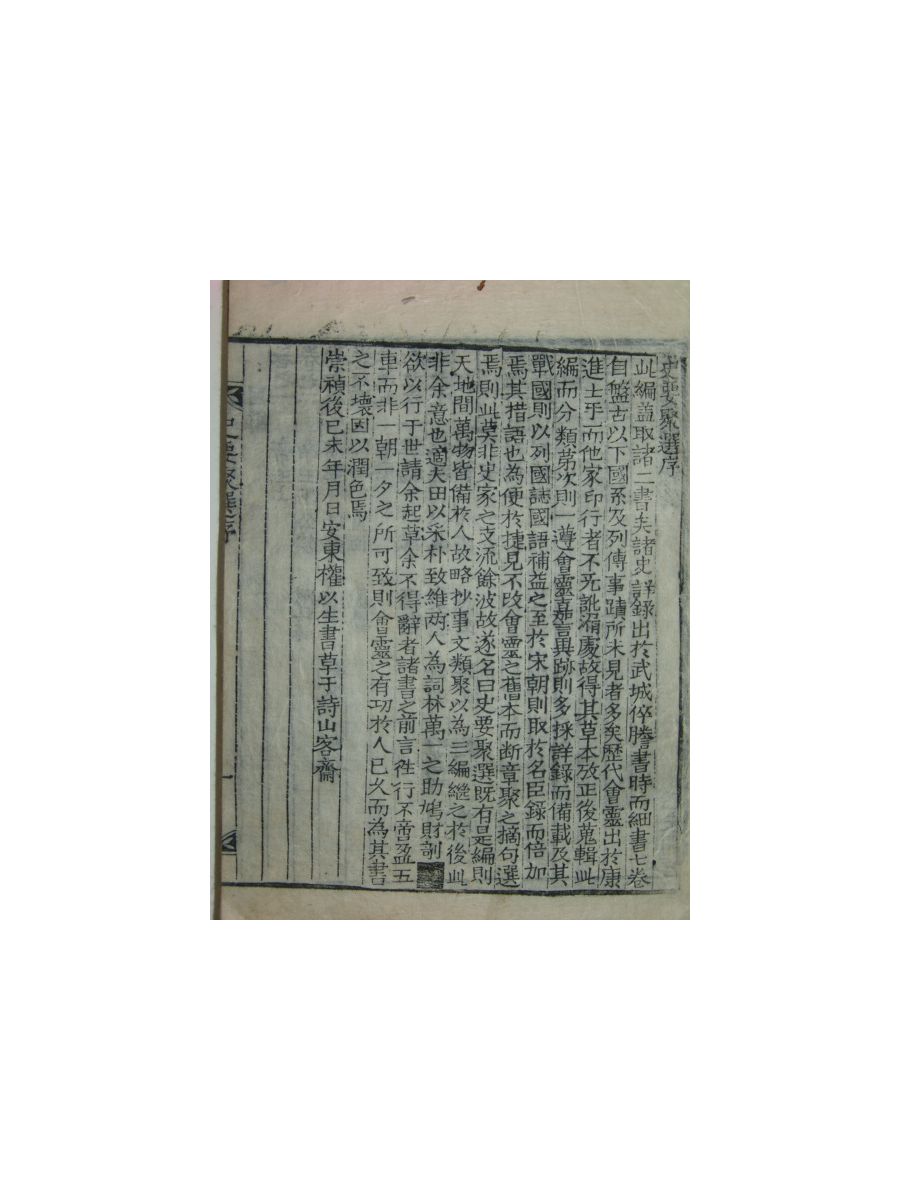 史要聚選序
此編盖取諸二書矣諸史詳錄出於武城倅謄書時而細書七卷
自盤古以下國系及列傳事蹟所未見者多矣歷代會靈出於康
進士乎而他家印行者不旡訛漏處故得其草本攷正後蒐輯此
編而分類第次則一遵會靈嘉言異跡則多採詳錄而備載及其
戰國則以列國誌國語補益之至於宋朝則取於名臣錄而倍加
焉其措語也為便於捷見不改會靈之舊本而断章聚之摘句選
焉則此莫非史家之支流餘波故遂名曰史要聚選既有是編則
天地間萬物皆備於人故略抄事文類聚以為三編継之於後此
非余意也適夫田以采朴致維两人為詞林萬一之助鳩財剞
欲以行于世請余起草余不得辭者諸書之前言徃行不啻盈五
車而非一朝一夕之所可致則會靈之有功於人已久而為其書
之不壞因以潤色焉
崇禎後己未年月日安東權以生書草于詩山客齋
史要聚選序
一